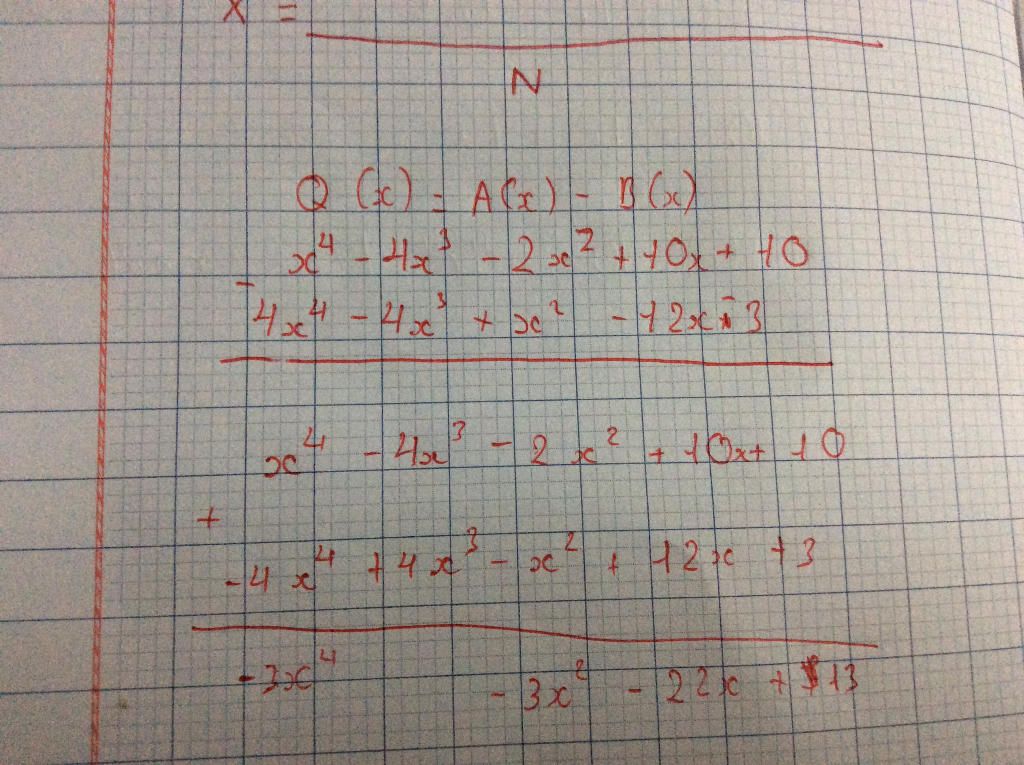 X =
N
Q (x) = A(x) - B(x)
x⁴ - 4x³ - 2x² + 10x + 10
-
4x⁴ - 4x³ + x² - 12x - 3
x⁴ - 4x³ - 2x² + 10x + 10
+
-4x⁴ + 4x³ - x² + 12x + 3
-3x⁴ - 3x² - 22x + 13